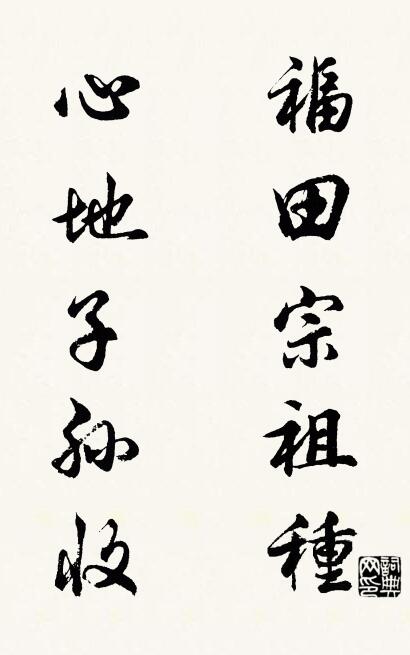 福田宗祖種
心地子孫收
詞典網印